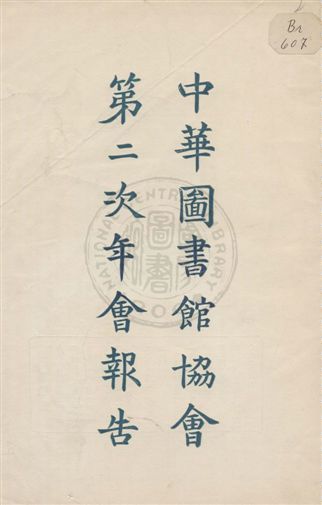 中華圖書館協會
第二次年會報告
Br
607
NATIONAL CENTRAL LIBRARY